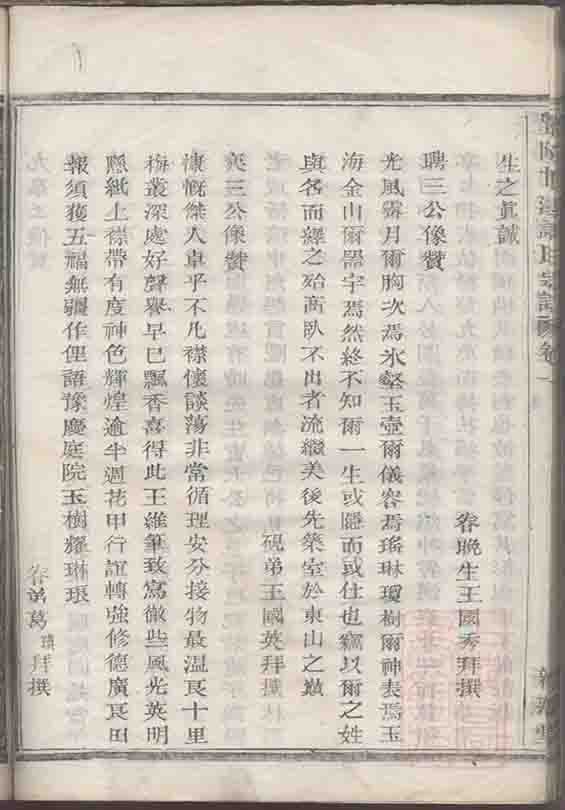 生之眞誠
眷晚生王國秀拜撰
聘三公像贊
光風霽月爾胸次焉氷壑玉壺爾儀容焉瑤琳瓊樹爾神表焉玉
海金山爾器宇焉然終不知爾一生或隱而或仕也竊以爾之姓
與名而繹之殆高臥不出者流繼美後先築室於東山之巓
硯弟王國英拜撰
奕三公像贊
慷慨傑人卓乎不凡襟懷談蕩非常循理安分接物最溫良十里
梅叢深處好聲譽早已飄香喜得此王維筆致寫微些風光英明
懸紙上襟帶有度神色輝煌逾半週花甲行誼轉強修德廣良田
報須獲五福無疆作俚語豫慶庭院玉樹耀琳琅
眷弟葛 拜撰
氏宗譜 卷一